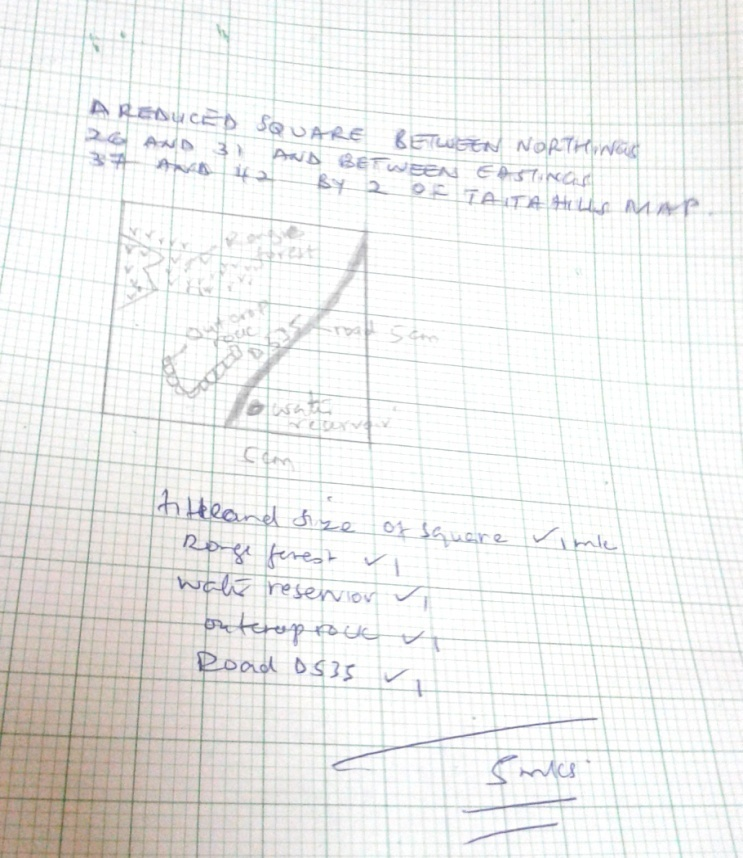 A REDUCED SQUARE BETWEEN NORTHINGS
26 AND 31 AND BETWEEN EASTINGS
37 AND 42 BY 2 OF TAITA HILLS MAP.
Ronge
forest
outcrop
rock
D535
road
5cm
water
reservoir
5cm
title and size of square ✓1mk
Ronge forest ✓1
Water reservior ✓1
outcrop rock ✓1
Road D535 ✓1
5mks